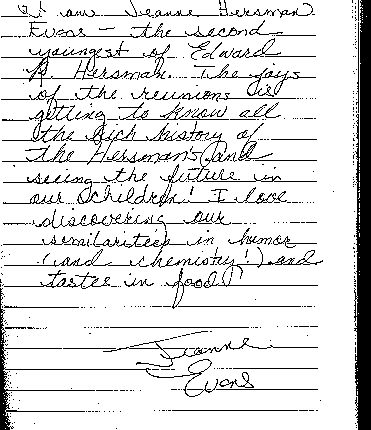 I am Jeanne Hersman
Evans - the second
youngest of Edward
R. Hersman. The joys
of the reunions is
getting to know all
the rich history of
the Hersman's (and
seeing the future in
our children! I love
discovering our
similarities in humor
(and chemistry!) and
tastes in food!
Jeanne
Evans